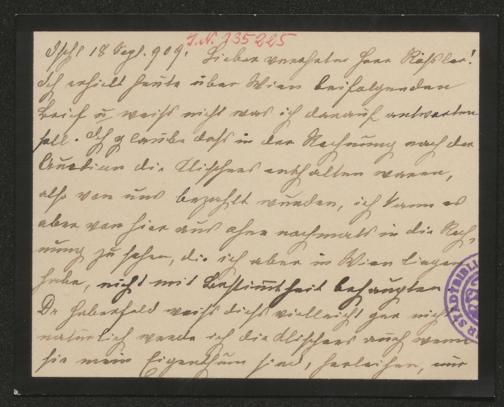 J.N. 735225
Ischl 18 Sept. 909. Lieber verehrter Herr Rößler!
Ich erhielt heute über Wien beifolgenden
Brief u. weiß nicht was ich darauf antworten
soll. Ich glaube daß in der Rechnung nach der
Auction die Clichees enthalten waren,
also von uns bezahlt wurden, ich kann es
aber von hier aus ohne nochmals in die Rech-
nung zu sehen, die ich aber in Wien liegen
habe, nicht mit Bestimmtheit behaupten
Dr Haberfeld weiß dies vielleicht gar nicht
natürlich werde ich die Clichees auch wenn
sie mein Eigenthum sind, herleihen, nur